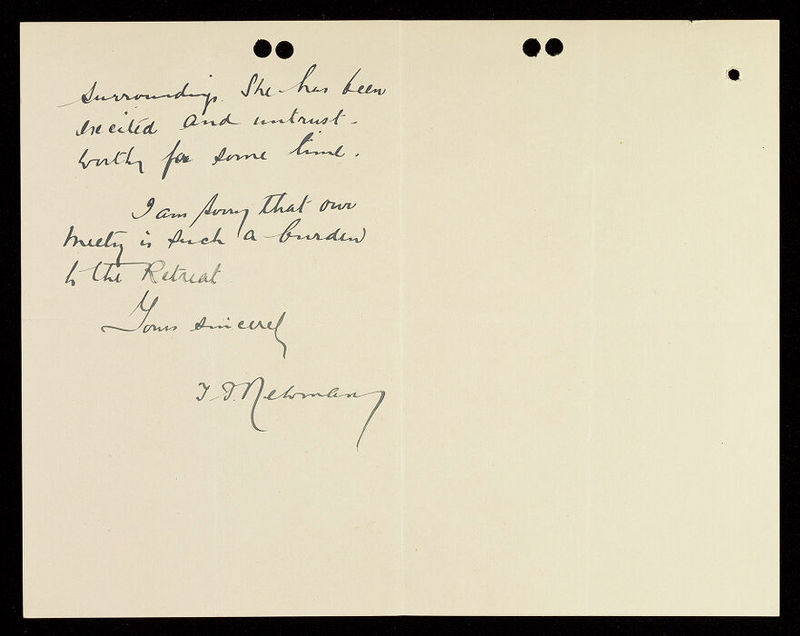 surroundings. She has been
excited and untrust-
worthy for some time.
I am sorry that our
Meeting is such a burden
to the Retreat
Yours sincerely
T. D. Newman